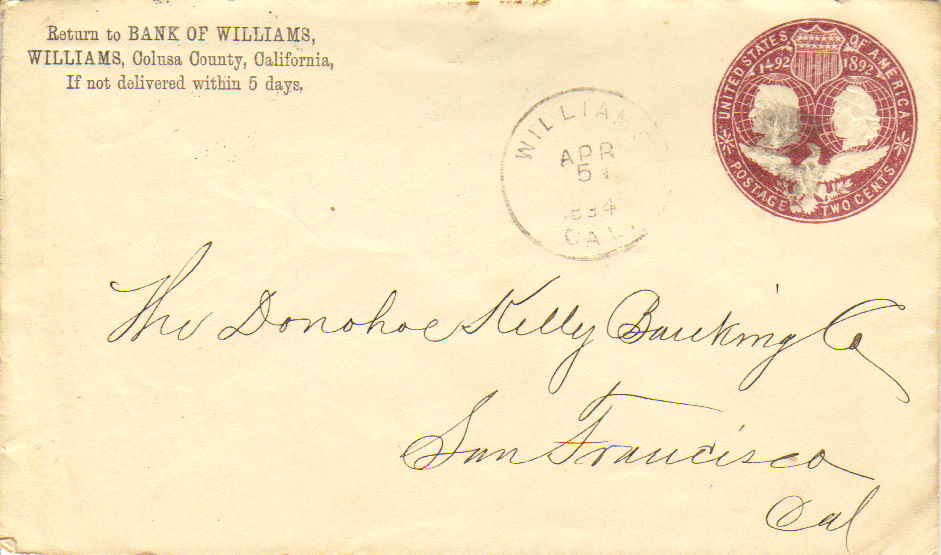 Return to BANK OF WILLIAMS,
WILLIAMS, Colusa County, California,
If not delivered within 5 days.
UNITED STATES OF AMERICA
1492 1892
POSTAGE TWO CENTS
WILLIAMS
APR
5
CAL.
The Donohoe Kelly Banking Co
San Francisco
Cal